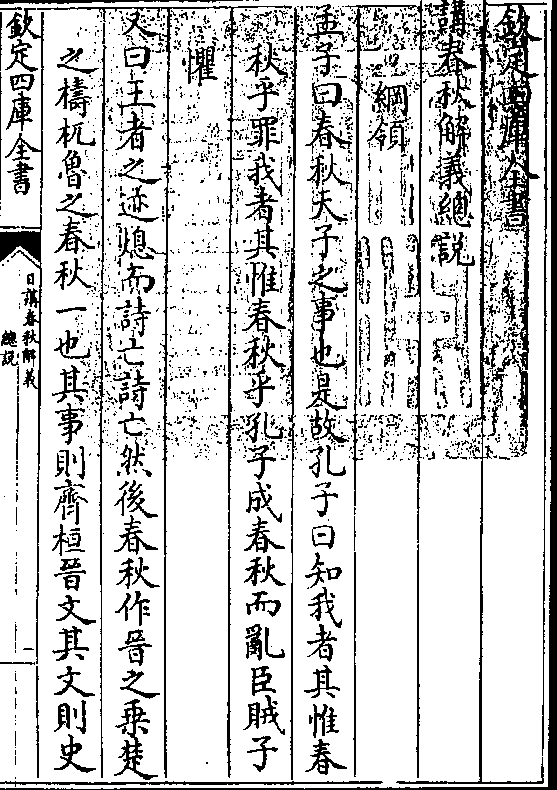 欽定四庫全書
講春秋解義總説
綱領
孟子曰春秋天子之事也是故孔子曰知我者其惟春
秋乎罪我者其惟春秋乎孔子成春秋而亂臣賊子
懼
又曰王者之迹熄而詩亡詩亡然後春秋作晉之乘楚
之檮杌魯之春秋一也其事則齊桓晉文其文則史
欽定四庫全書
日講春秋解義
總説
一